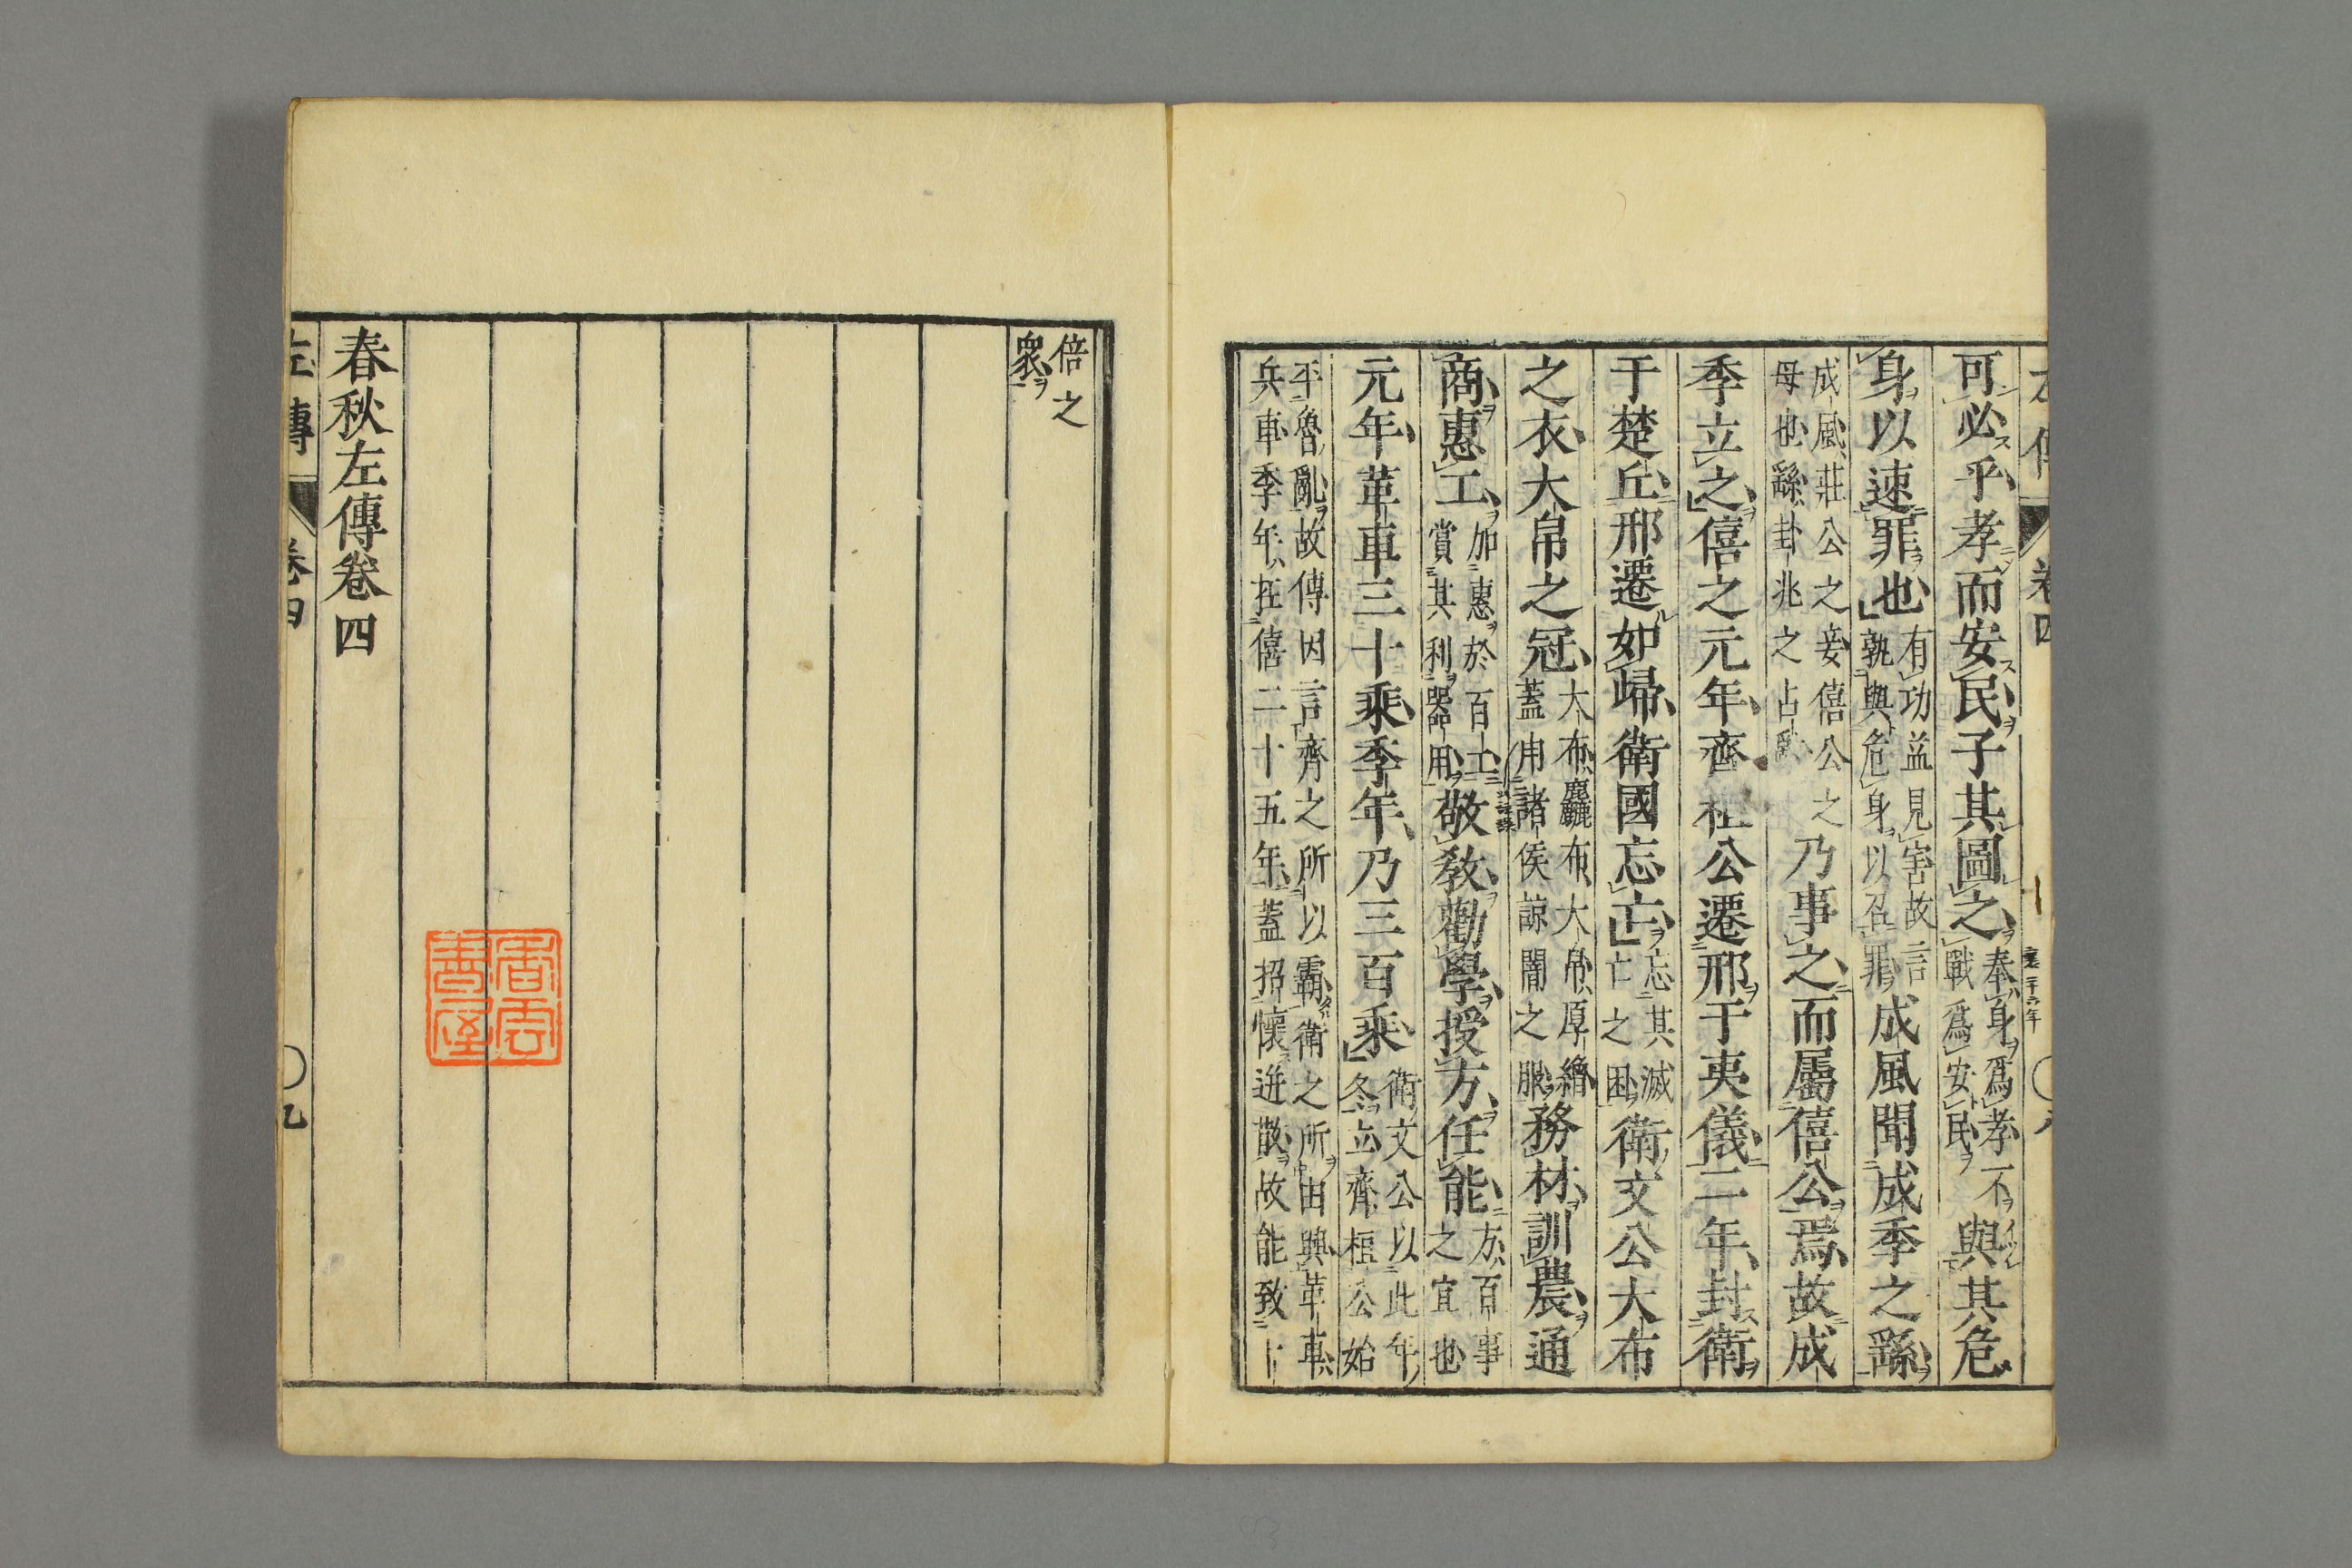 可必乎孝而安民子其圖之奉身爲孝不戰爲安民與其危
身以速罪也有功益見害故言孰與危身以召罪成風聞成季之繇
成風莊公之妾僖公之母也繇卦兆之占乃事之而屬僖公焉故成
季立之僖之元年齊桓公遷邢于夷儀二年封衛
于楚丘邢遷如歸衛國忘亡忘其滅亡之困衛文公大布
之衣大帛之冠大布麤布大帛厚繒蓋用諸侯諒闇之服務材訓農通
商惠工加惠於百工賞其利器用敬教勸學授方任能方百事之宜也
元年革車三十乘季年乃三百乘衛文公以此年冬立齊桓公始
平魯亂故傳因言齊之所以霸衛之所由興革車兵車季年在僖二十五年蓋招懷迸散故能致十
倍之衆
春秋左傳卷四
左傳 卷四 九
香雲書屋